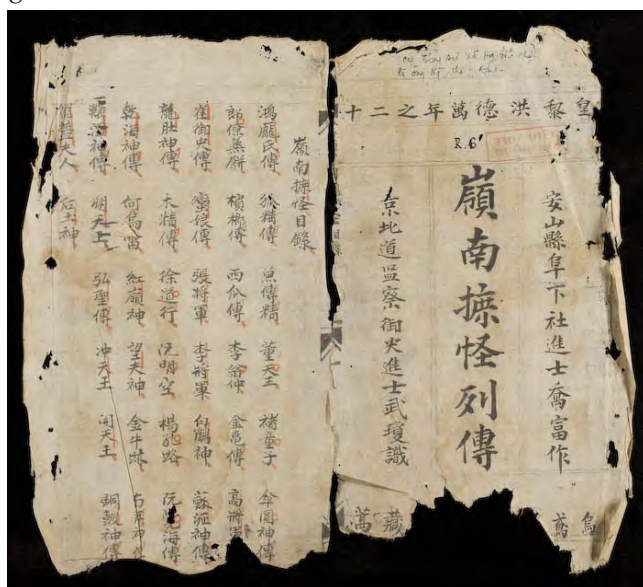 皇黎洪德萬年之二十
R.6
THƯ VIỆN
安山縣阜下社進士喬富作
嶺南摭怪列傳
京北道监察御史進士武瓊識
烏鳶
藏蒿
嶺南摭怪目錄
鴻龐氏傳 狐精傳 魚傳精 董天王 褚童子 傘圓神傳
郎僚蒸餅 檳榔傳 西瓜傳 李翁仲 金龜傳 高將軍
崔御史傳 蠻娘傳 張將軍 李將軍 白鶴神 蘇瀝神傳
龍肚神傳 大精傳 徐道行 阮明空 楊孔路 阮覺海傳
乾海神傳 何烏雷 紅嶺神 望夫神 金牛跡
神傳 朔天王 弘聖傳 冲天王 開天王 銅鼓神傳
夫人 后土神